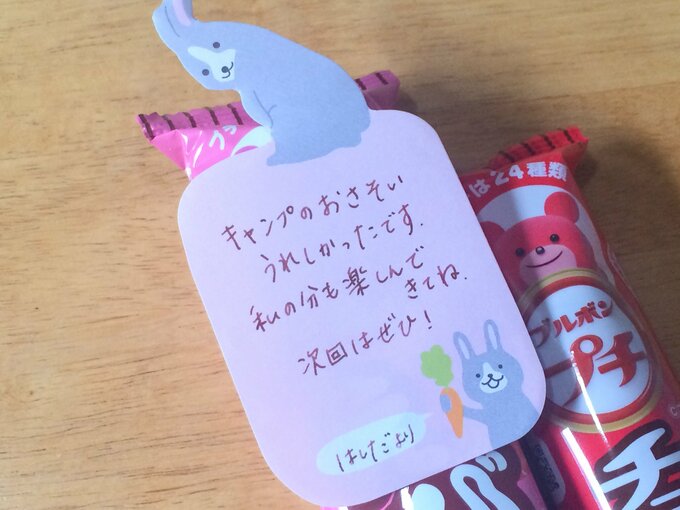 キャンプのおさそい
うれしかったです.
私の分も楽しんで
きてね.
次回はぜひ!
はしだより
は24種類
ブルボン
プチ
チ